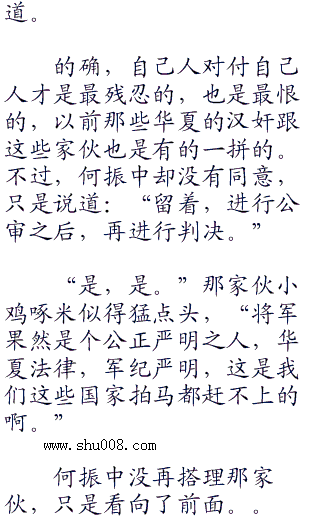 道。
的确，自己人对付自己
人才是最残忍的，也是最恨
的，以前那些华夏的汉奸跟
这些家伙也是有的一拼的。
不过，何振中却没有同意，
只是说道：“留着，进行公
审之后，再进行判决。”
“是，是。”那家伙小
鸡啄米似得猛点头，“将军
果然是个公正严明之人，华
夏法律，军纪严明，这是我
们这些国家拍马都赶不上的
啊。”
www.shu008.com
何振中没再搭理那家
伙，只是看向了前面。。